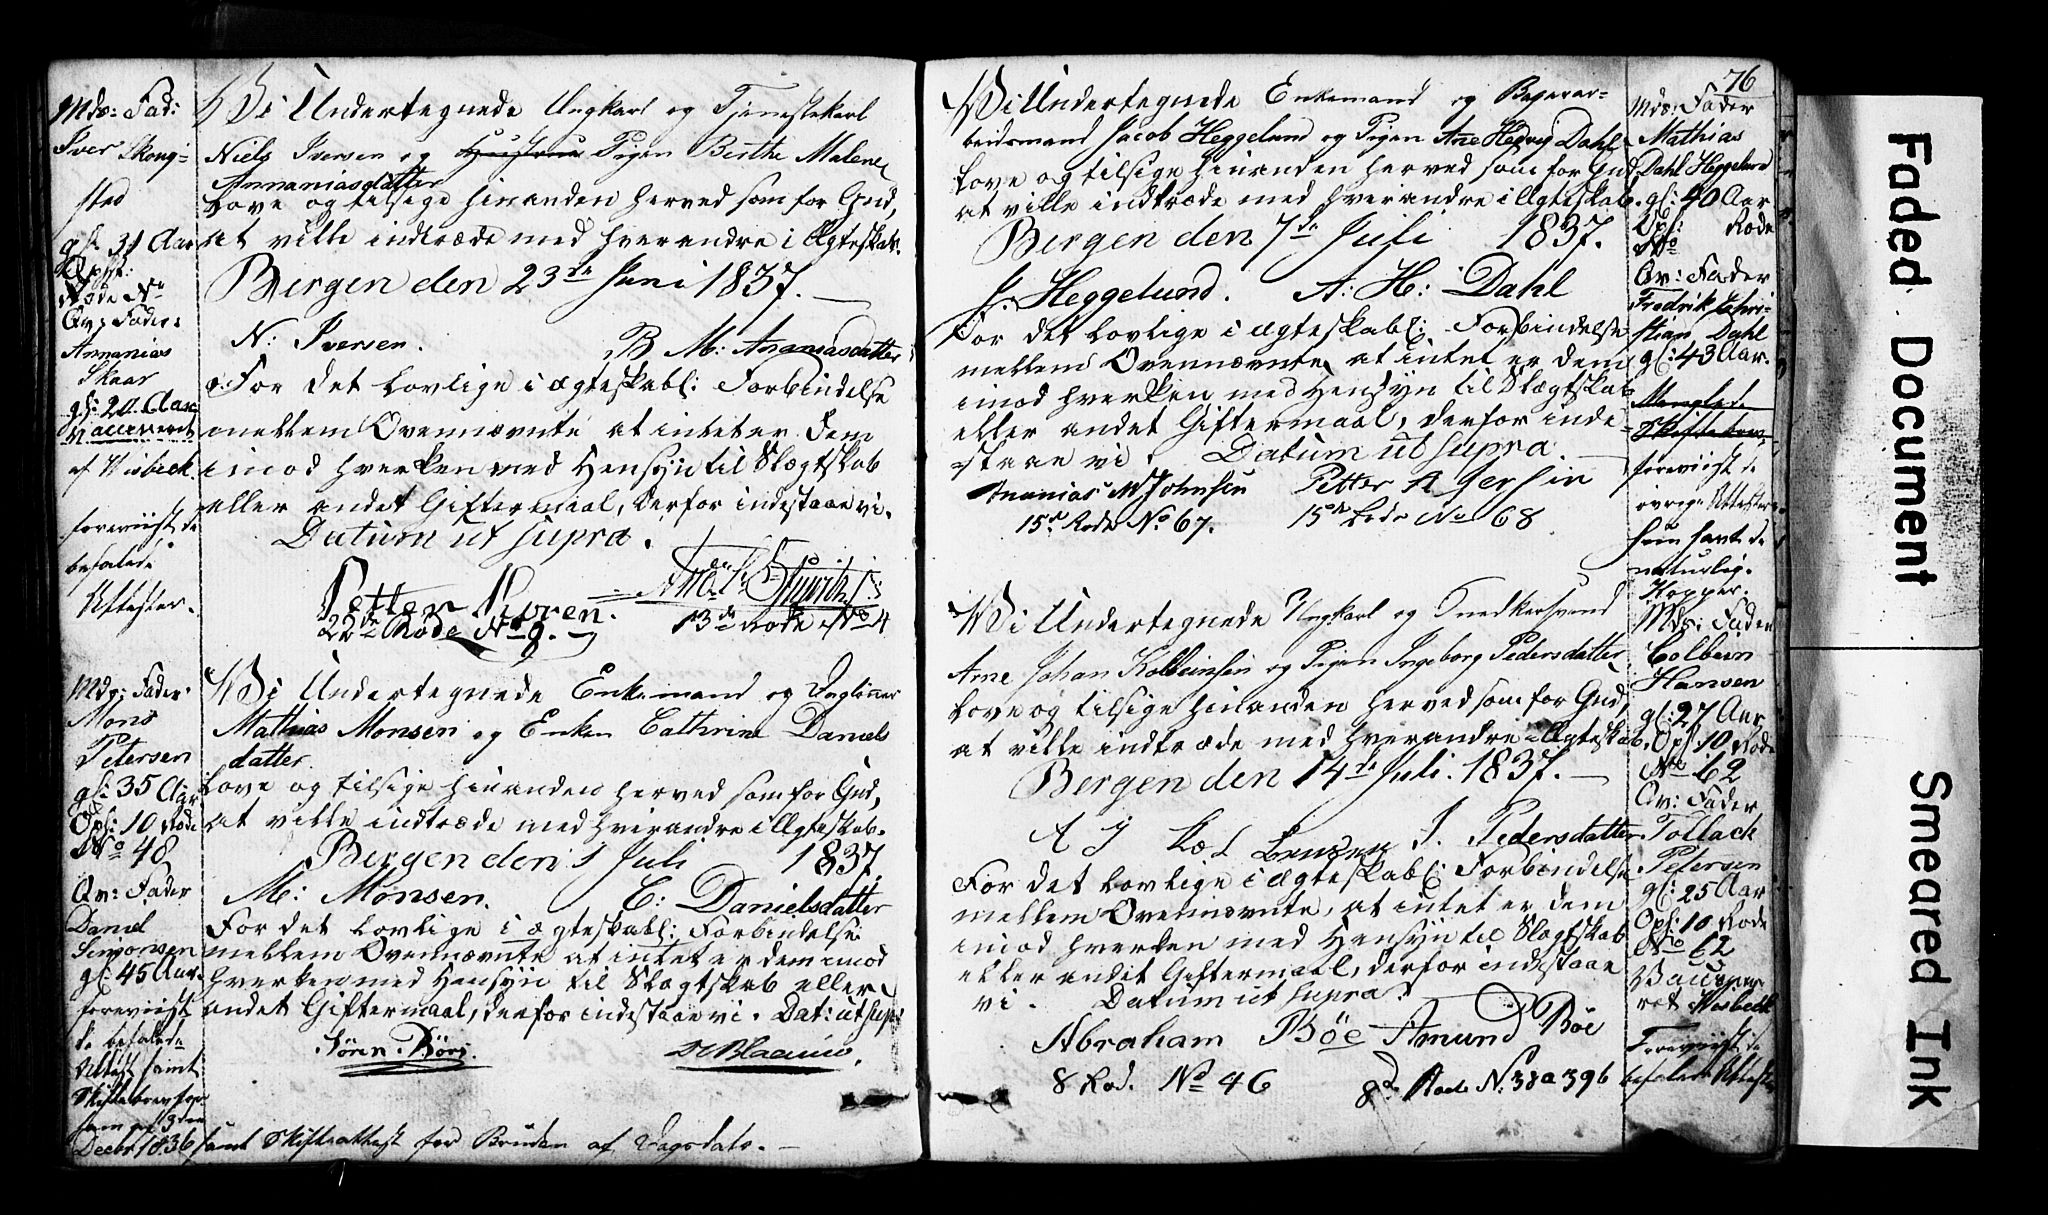 Mds: Fad:
Iver Skong-
sted
gl: 31 Aar
Opf:
Rode No
Qv: Fader:
Annanias
Skaar
gl: 20 Aar
Vaccineret
af Wisbeck.
foreviist de
befalede
Attester.
Vi Undertegnede Ungkarl og Tjenestekarl
Niels Iversen og Pigen Birthe Malene
Annaniasdatter
love og tilsige hinanden herved som for Gud,
at ville indtræde med hverandre i Ægteskab.
Bergen den 23de Juni 1837.
N: Iversen. B M: Ananiasdatter
For det lovlige i ægteskabl: Forbindelse
mellem Ovennævnte at intet er dem
imod hverken med Hensyn til Slægtskab
eller andet Giftermaal, derfor indestaae vi.
Datum ut supra.
Petter
22de Rode No 9. 13de Rode No 4
Mdg: Fader:
Mons
Petersen
gl: 35 Aar
Opf: 10 Rode
No 48
Qv: Fader
Daniel
Simonsen
gl: 45 Aar.
foreviist
de befalede
Attest samt
Skiftebrev for
ham af 3 den
Decbr 1836 samt Skifteattest for Bruden af Dagsdato.
Vi Undertegnede Enkemand og
Mathias Monsen og Enken Cathrine Daniels
datter
love og tilsige hinanden herved som for Gud,
at ville indtræde med hverandre i Ægteskab.
Bergen den 1 Juli 1837.
M: Monsen. C: Danielsdatter
For det lovlige i ægteskabl: Forbindelse
mellem Ovennævnte at intet er dem imod
hverken med Hensyn til Slægtskab eller
andet Giftermaal, derfor indestaae vi. Dat: ut supr:
Sören Börs.
76
Vi Undertegnede Enkemand og Bogerar-
beidsmand Jacob Heggelund og Pigen Ane Hedvig Dahl
love og tilsige hinanden herved som for Gud,
at ville indtræde med hverandre i Ægteskab.
Bergen den 7de Juli 1837.
J. Heggelund. A: H: Dahl
For det lovlige i ægteskabl: Forbindelse
mellem Ovennævnte at intet er dem
imod hverken med Hensyn til Slægtskab
eller andet Giftermaal, derfor inde-
staae vi. Datum ut supra.
Ananias M Johnsen Petter A
15de Rode No. 67. 15de Rode No 68
Mds: Fader
Mathias
Dahl Heggelund
gl: 40 Aar
Opf: Rode
No
Qv: Fader
Fredrik Chri-
stian Dahl
gl: 43 Aar.
Manglede
Skiftebrev
foreviist de
øvrige Attester
havt de
naturlig.
Kopper.
Vi Undertegnede Ungkarl og Snedkersvend
Arne Johan Kolbeinsen og Pigen Ingeborg Pedersdatter
love og tilsige hinanden herved som for Gud,
at ville indtræde med hverandre i Ægteskab.
Bergen den 14de Juli 1837.
A J I. Pedersdatter
For det lovlige i ægteskabl: Forbindelse
mellem Ovennævnte, at intet er dem
imod hverken med Hensyn til Slægtskab
eller andet Giftermaal, derfor indestaae
vi. Datum ut supra.
Abraham Böe Amund Böe
8 Rod. No 46 8de Rode N. 38 a 39 b
Mds: Fader
Colbein
Hansen
gl: 27 Aar
Opf: 10 Rode
No 62
Qv: Fader
Tollack
Petersen
gl: 25 Aar
Opf: 10 Rode
No 62
Vaccine-
ret Wisbeck
Foreviist de
befalede Attester
Faded Document
Smeared Ink